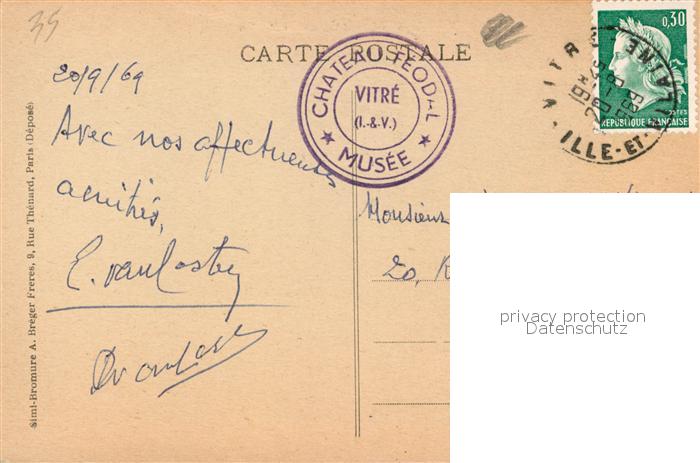 35
CARTE POSTALE
0,30
POSTES
REPUBLIQUE FRANÇAISE
VITRÉ
ILLE-ET-VILAINE
CHATEAU FÉODAL
VITRÉ
(I.-&-V.)
★ MUSÉE ★
20/9/69
Avec nos affectueuses
amitiés,
Monsieur
20, R
Simi-Bromure A. Bréger Frères, 9, Rue Thénard, Paris (Déposé)
privacy protection
Datenschutz